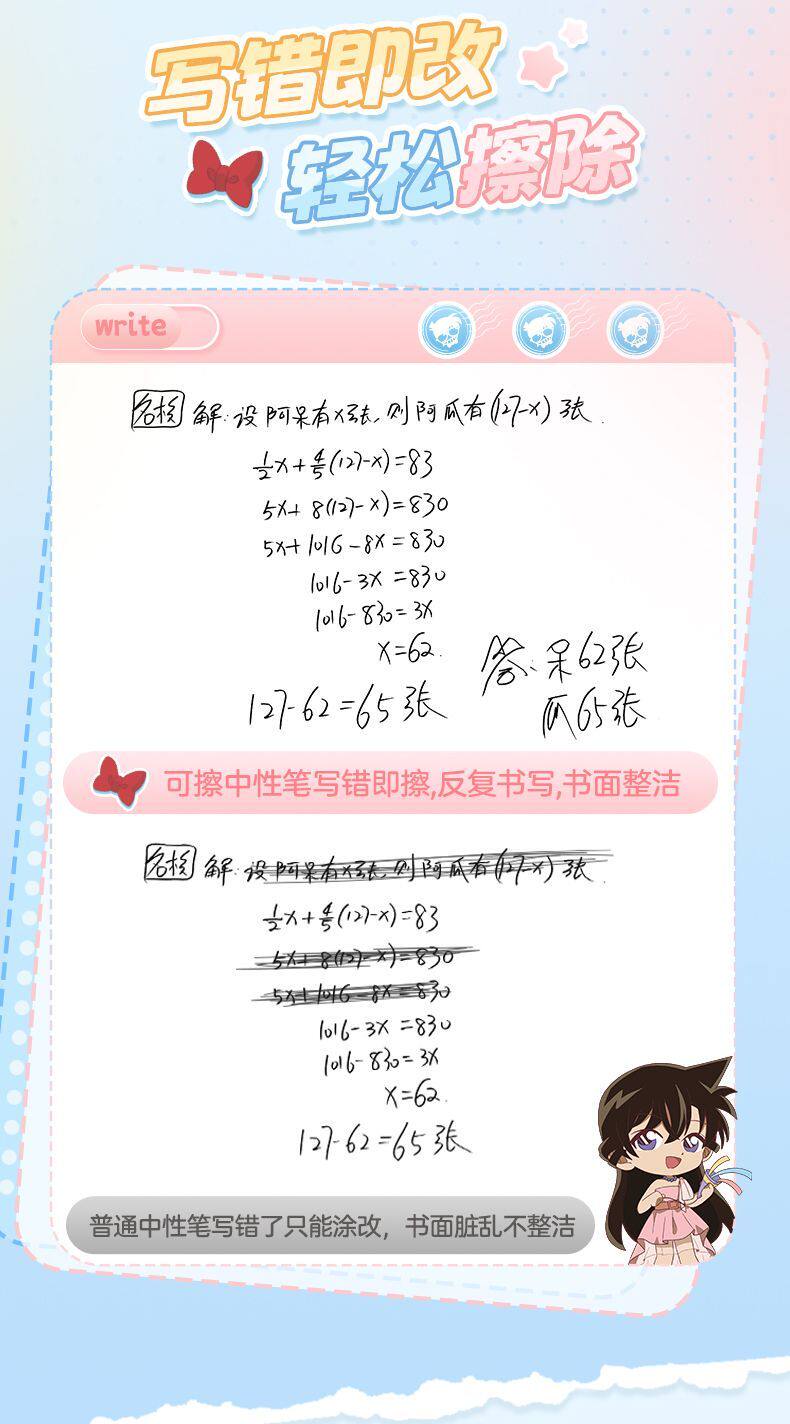 写错即改
轻松擦除
write
解:设阿呆有x张,则阿瓜有(127-x)张.
1/2x+4/5(127-x)=83
5x+8(127-x)=830
5x+1016-8x=830
1016-3x=830
1016-830=3x
x=62.
127-62=65张
答:呆62张
瓜65张
可擦中性笔写错即擦,反复书写,书面整洁
解:设阿呆有x张,则阿瓜有(127-x)张.
1/2x+4/5(127-x)=83
5x+8(127-x)=830
5x+1016-8x=830
1016-3x=830
1016-830=3x
x=62.
127-62=65张
普通中性笔写错了只能涂改，书面脏乱不整洁